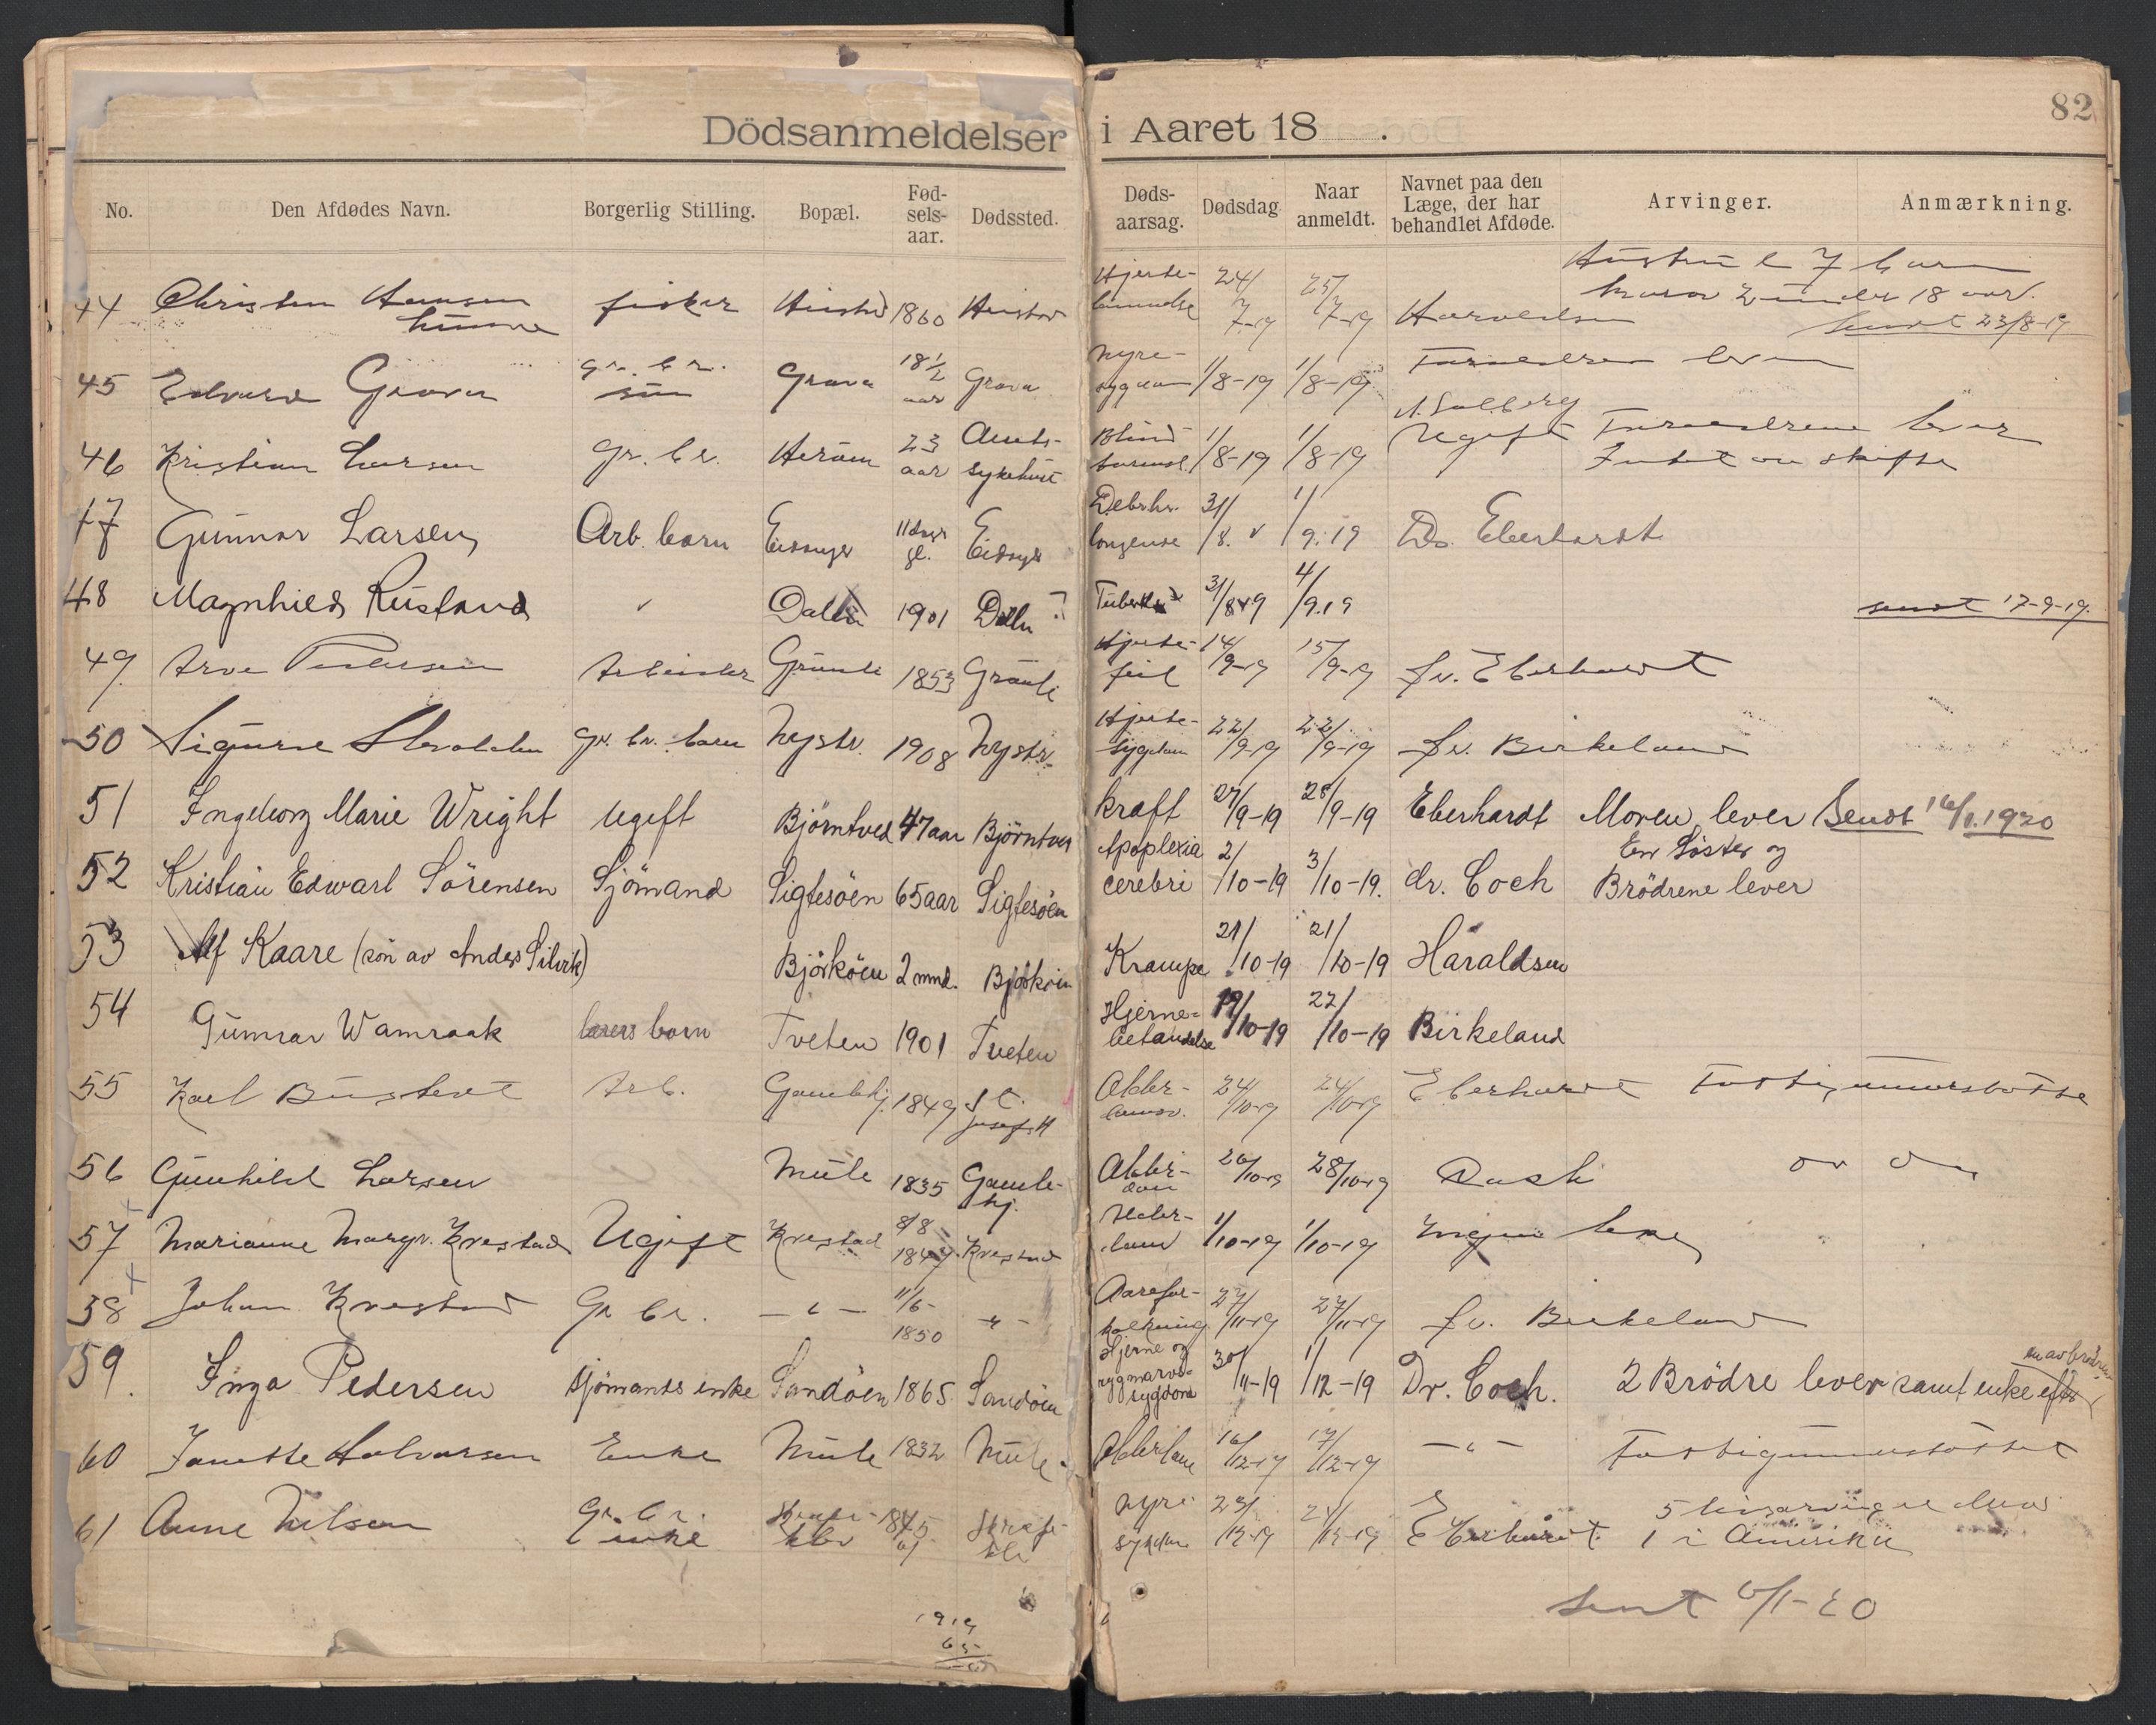 Dödsanmeldelser i Aaret 18 .
82
No. Den Afdødes Navn. Borgerlig Stilling. Bopæl. Fød-sels-aar. Dødssted. Døds-aarsag. Dødsdag Naar anmeldt. Navnet paa den Læge, der har behandlet Afdøde. Arvinger. Anmærkning.
44 Christen Hansen fisker 1860 Hjerte- 24/7-19 25/7-19 Haraldsen 7 barn
2 under 18 aar. Sendt 23/8-19
45 Edvard Grava gr. br. sön Grava 18 1/2 aar Grava Nyre-sygdom 1/8-19 1/8-19 Foraeldrene lever
46 Kristian Larsen Gr. br. Heröen 23 aar Amts-sykehuset Blind-tarmsb. 1/8-19 1/8-19 N. Solberg Ugift Foraeldrene lever
Intet om skifte
47 Gunnar Larsen Arb. barn Eidanger 11 dage gl. Eidanger 31/8. 1/9.19 Dr. Eberhardt
48 Magnhild Rustand Dalen 1901 Dalen Tuberkl. 31/8 19 4/9.19 sendt 17-9-19.
49. Arve Pedersen Arbeider 1853 Hjerte-feil 14/9-19 15/9-19 Dr. Eberhardt
50 Sigurd gr. br. barn Nystr. 1908 Nystr. Hjerte-sygdom 22/9-19 22/9-19 Dr. Birkeland
51 Ingeborg Marie Wright Ugift Björntved 47 aar Björntved kraft 27/9-19 28/9-19 Eberhardt Moren lever Sendt 16/1.1920
52 Kristian Edwart Sörensen Sjömand Sigtesöen 65 aar Sigtesöen Apoplexia cerebri 2/10-19 3/10-19. dr. Coch En Söster og
Brödrene lever
53 Alf Kaare (sön av Anders Silvik) Björköen 2 mnd. Björköen Krampe 21/10-19 21/10-19 Haraldsen
54 Gunnar Wamraak lærers barn Tveten 1901 Tveten Hjerne-betændelse 19/10-19 22/10-19 Birkeland
55 Karl Arb. Gamlehj. 1849 St. Josefs H Alder-domsv. 24/10-19 24/10-19 Eberhardt Fattigunderstötte
56 Gunhild Larsen Mule 1835 Gamle-hj. Alder-dom 26/10-19 28/10-19 Rash
57 Marianne Margr. Krestad Ugift Krestad 8/8-1849 Krestad Alder-dom 1/10-19 1/10-19 Ingen læge
58 Johan Krestad Gr. br. — " — 11/6-1850 - " - Aarefor-kalkning 27/11-19 27/11-19 Dr. Birkeland
59. Inga Pedersen sjömands enke Sandöen 1865. Sandöen Hjerne og rygmarvs-sygdom 30/11-19 1/12-19 Dr. Coch. 2 Brödre lever samt enke efter en av brödrene
60 Janette Halvorsen Enke Mule 1832 Mule Alderdom 16/12-19 17/12-19 — " — Fattigunderstöttet
61 Anne Nilsen Gr. br. enke 1845 Nyre-sykdom 23/12-19 24/12-19 Eberhardt. 5 livsarvinger
1 i Amerika
Sendt 6/1-20
1919
65